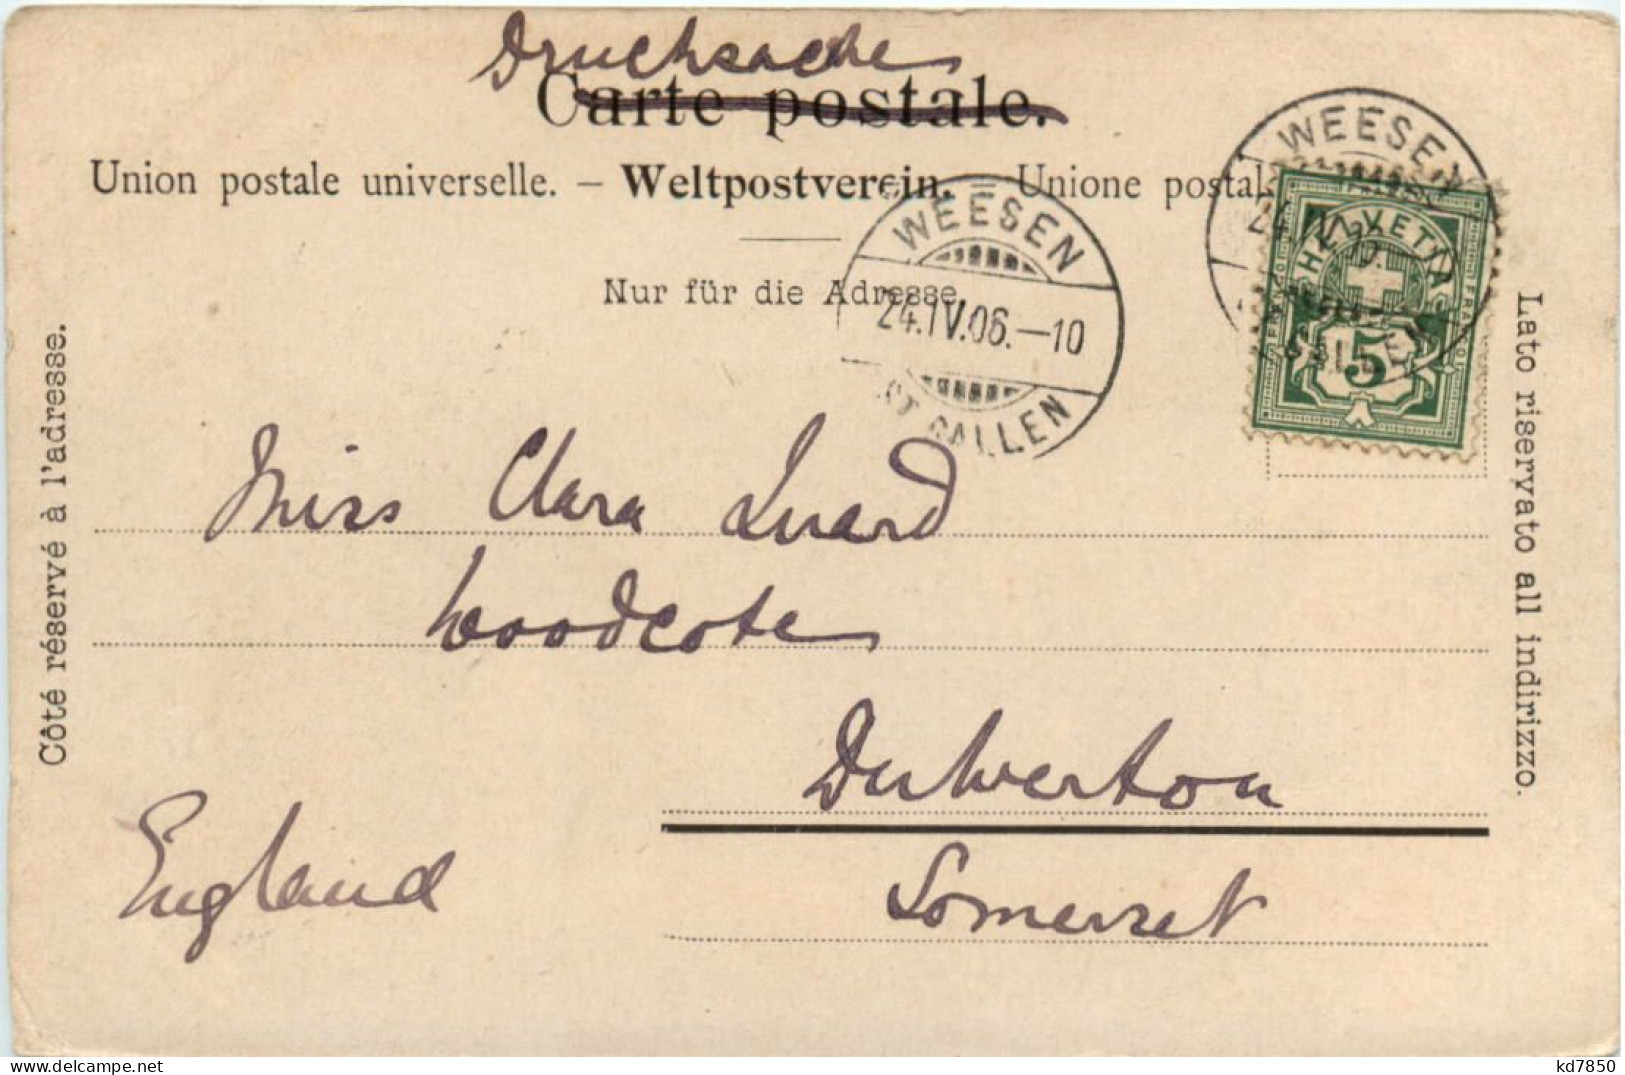 Drucksache
Carte postale.
Union postale universelle. – Weltpostverein. – Unione postal
Nur für die Adresse.
WEESEN
24.IV.06.–10
ST. GALLEN
WEESEN
HELVETIA
FRANCO
5
FRANCO
Côté réservé à l'adresse.
Lato riservato all indirizzo.
Miss Clara Luard
Woodcote
Dulverton
Somerset
England
delcampe.net
kd7850